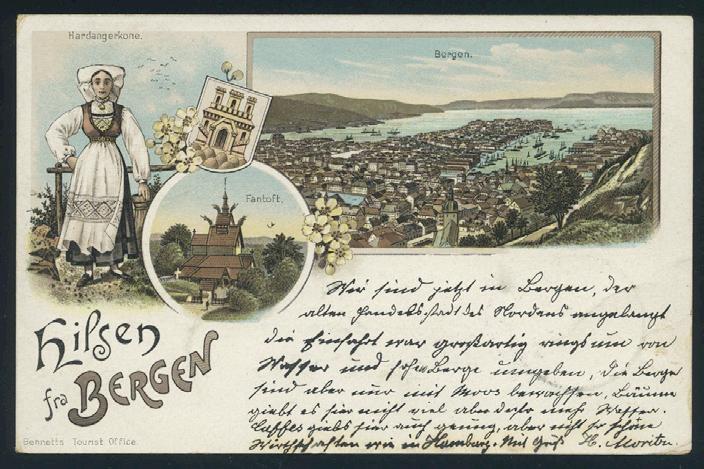 Hardangerkone.
Bergen.
Fantoft.
Hilsen
fra BERGEN
Wir sind jetzt in Bergen, der
alten Handelsstadt des Nordens angelangt
die Einfahrt war großartig rings um von
Wasser und hohe Berge umgeben, die Berge
sind aber nur mit Moos bewachsen, Bäume
giebt es hier nicht viel aber desto mehr Wasser.
giebts hier auch genug, aber nicht so schöne
Wirthschaften wie in Hamburg. Mit Gruß H. Moritz.
Bennetts Tourist Office.